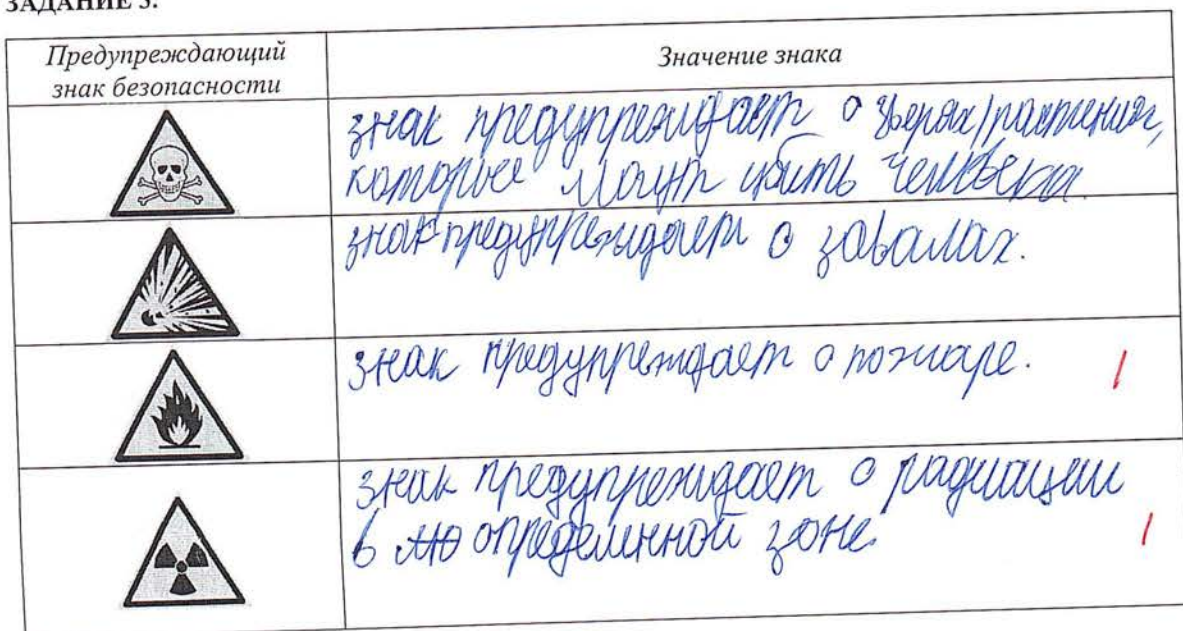 ЗАДАНИЕ 3.
Предупреждающий
знак безопасности
Значение знака
знак предупреждает о зверях/растениях,
которые могут убить человека.
знак предупреждает о завалах.
знак предупреждает о пожаре.
1
знак предупреждает о радиации
в определенной зоне
1